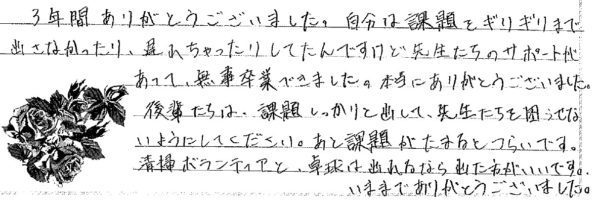 3年間ありがとうございました。自分は課題をギリギリまで
出さなかったり、遅れちゃったりしてたんですけど先生たちのサポートが
あって、無事卒業できました。本当にありがとうございました。
後輩たちは、課題しっかりと出して、先生たちを困らせな
いようにしてください。あと課題がたまるとつらいです。
清掃ボランティアと、卓球は出れるなら出た方がいいです。
いままでありがとうございました。